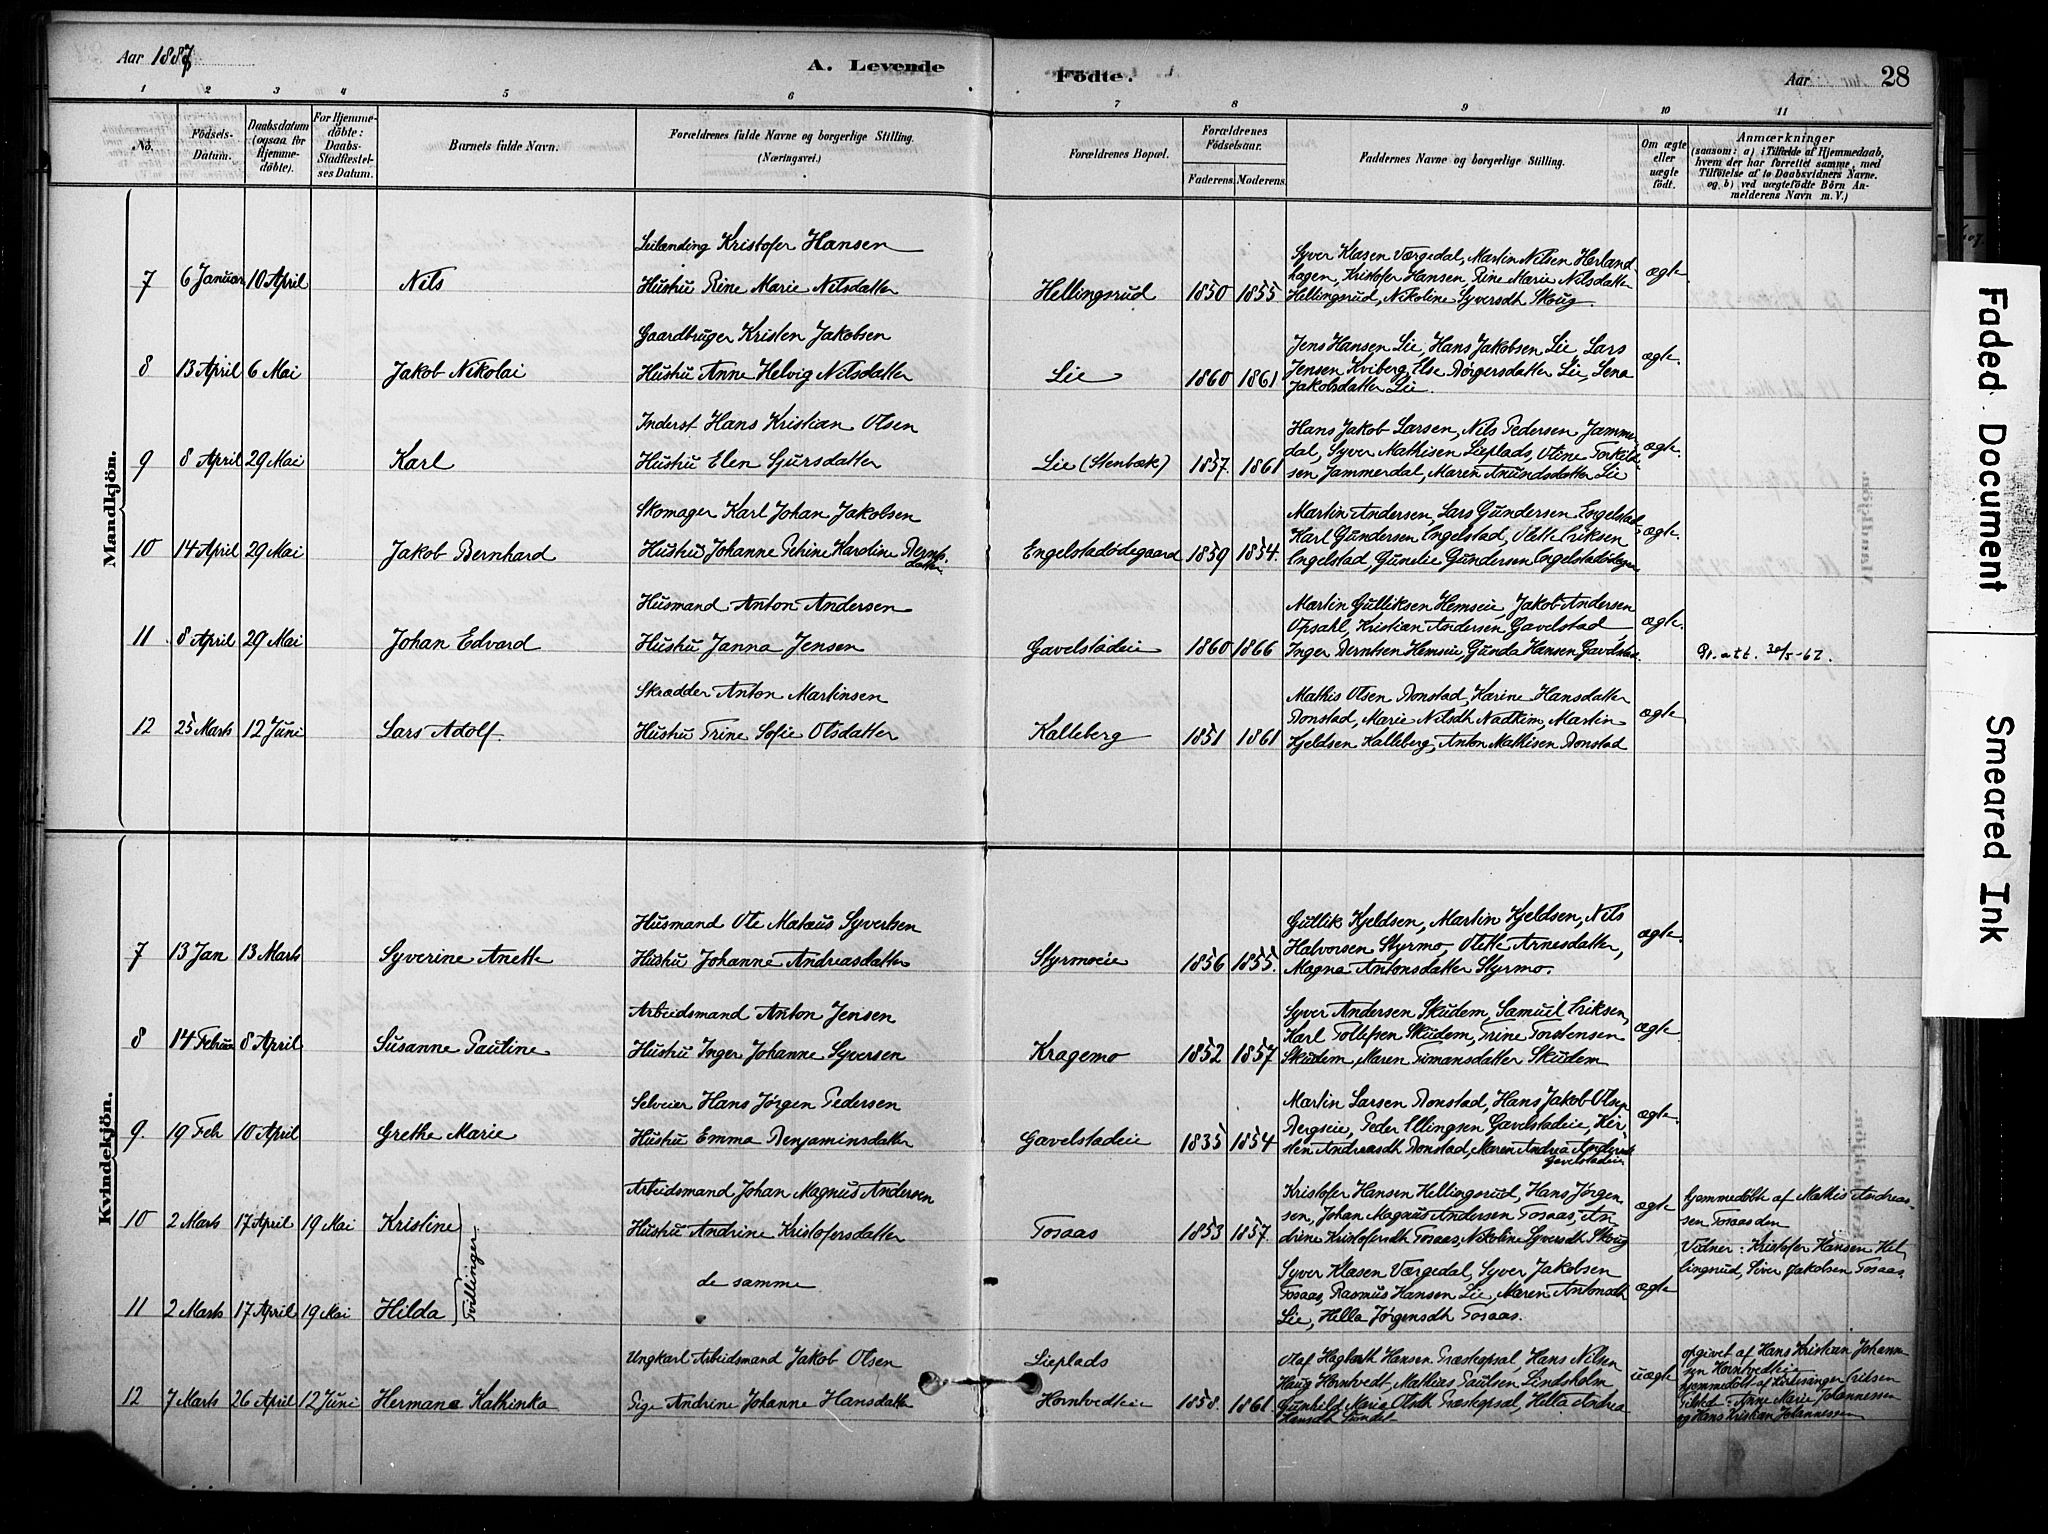 Aar 1887
A. Levende Födte.
Aar
28
1 2 3 4 5 6 7 8 9 10 11
No.
Födsels-Datum.
Daabsdatum (ogsaa for Hjemmedöbte).
For Hjemmedöbte: Daabs-Stadfæstelses Datum.
Barnets fulde Navn.
Forældrenes fulde Navne og borgerlige Stilling. (Næringsvei.)
Forældrenes Bopæl.
Forældrenes Födselsaar.
Faderens. Moderens.
Faddernes Navne og borgerlige Stilling.
Om ægte eller uægte födt.
Anmærkninger
(saasom: a) i Tilfælde af Hjemmedaab,
hvem der har forrettet samme, med
Tilföielse af to Daabsvidners Navne.
og b) ved uægtefödte Börn Anmelderens Navn m. V.)
Mandkjön.
Leilænding Kristofer Hansen
7 6 Januar 10 April Nils Hustru Rine Marie Nilsdatter Hellingsrud 1850 1855
Syver Klasen Værgedal, Martin Nilsen Hærland-
hagen, Kristofer Hansen, Rine Marie Nilsdatter
Hellingsrud, Nikoline Syversdt Skoug.
ægte
Gaardbruger Kristen Jakobsen
8 13 April 6 Mai Jakob Nikolai Hustru Anne Helvig Nilsdatter Lie 1860 1861
Jens Hansen Lie, Hans Jakobsen Lie Lars
Jensen Kviberg, Else Börgersdatter Lie, Lena
Jakobsdatter Lie.
ægte.
Inderst Hans Kristian Olsen
9 8 April 29 Mai Karl Hustru Elen Sjursdatter Lie (Stenbæk) 1857. 1861
Hans Jakob Larsen, Nils Pedersen Jammer
dal, Syver Mathisen Lieplads, Otine Torkild
sen Jammerdal, Maren Amundsdatter Lie
ægte.
Skomager Karl Johan Jakobsen
10 14 April 29 Mai Jakob Bernhard Hustru Johanne Petrine Karoline Bernts datter. Engelstadödegaard 1859 1854.
Martin Andersen, Lars Gundersen Engelstad,
Karl Gundersen Engelstad, Olette Eriksen
Engelstad, Gunelie Gundersen Engelstadödegaar
ægte.
Husmand Anton Andersen
11 8 April 29 Mai Johan Edvard Hustru Janna Jensen Gavelstadeie 1860 1866
Martin Gulliksen Hemseie, Jakob Andersen
Opsahl, Kristian Andersen Gavelstad,
Inger Berntsen Hemseie, Gunda Hansen Gavelstad.
ægte.
Pr. att. 30/5-62.
Skrædder Anton Martinsen
12 25 Marts 12 Juni Lars Adolf. Hustru Trine Sofie Olsdatter Kalleberg 1851 1861
Mathis Olsen Bonstad, Karine Hansdatter
Bonstad, Marie Nilsdt Nadkim, Martin
Kjeldsen Kalleberg, Anton Mathisen Bonstad
ægte
Kvindekjön.
Husmand Ole Matæus Syvertsen
7 13 Jan 13 Marts Syverine Anette Hustru Johanne Andreasdatter Styrmoeie 1856 1855.
Gullik Kjeldsen, Martin Kjeldsen, Nils
Halvorsen Styrmo, Olette Arnesdatter,
Magna Antonsdatter Styrmo.
ægte.
Arbeidsmand Anton Jensen
8 14 Februar 8 April Susanne Pauline Hustru Inger Johanne Syversen Kragemo 1852 1857
Syver Andersen Skudem, Samuel Eriksen,
Karl Tollefsen Skudem, Trine Torstensen
Skudem, Maren Simansdatter Skudem
ægte.
Selveier Hans Jörgen Pedersen
9. 19 Feb 10 April Grethe Marie Hustru Emma Benjaminsdatter Gavelstadeie 1835 1854
Martin Larsen Bonstad, Hans Jakob Olsen
Bergseie, Peder Ellingsen Gavelstadeie, Kir
sten Andreasdt Bonstad, Maren Andrea Andersdt
Gavelstadeie
ægte.
Arbeidsmand Johan Magnus Andersen
10 2 Marts 17 April 19 Mai Kristine Hustru Andrine Kristofersdatter Tosaas 1853 1857.
Kristofer Hansen Hellingsrud, Hans Jörgen-
sen, Johan Magnus Andersen Tosaas, An-
drine Kristofersdt Tosaas, Nikoline Syversdt Skoug
ægte
hjemmedöbte af Mathis Andrea-
sen Tosaas den
Vidner: Kristofer Hansen Hel
lingsrud, Siver Jakobsen Tosaas.
Tvillinger
de samme
11 2 Marts 17 April 19 Mai Hilda
Syver Klasen Værgedal, Syver Jakobsen
Tosaas, Rasmus Hansen Lie, Maren Antonsdt
Lie, Hella Jörgensdt Tosaas.
ægte
Ungkarl Arbeidsmand Jakob Olsen Lieplads
12 7 Marts 26 April 12 Juni Hermane Kathinka Pige Andrine Johanne Hansdatter Horntvedteie 1858. 1861
Olaf Hagbarth Hansen Præstegsal, Hans Nilsen
Haug Horntvedt, Mathias Paulsen Lindsholm
Gunhild Maria Olsdt Præstegsal, Hella Andrea
Hansdt Sundet
uægte
opgivet af Hans Kristian Johann
sen Horntvedteie
hjemmedöbt af Kirkesanger Eriksen
Tilsted: Anne Marie Johannessen
og Hans Kristian Johannessen
Faded Document
Smeared Ink